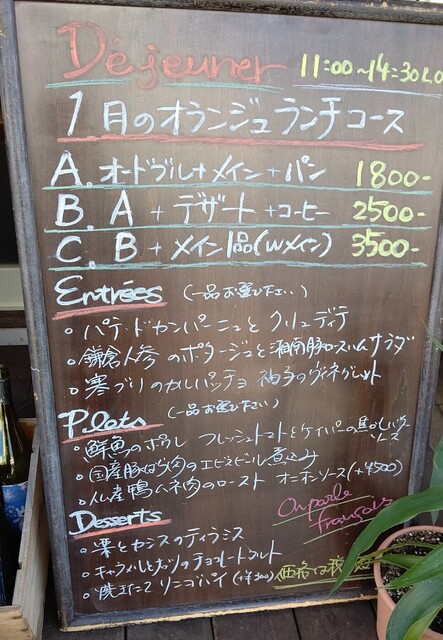 Déjeuner 11:00~14:30 L.O
1月のオランジュランチコース
A. オードブル+メイン+パン 1800-
B. A + デザート +コーヒー 2500-
C. B + メイン1品(Wメイン) 3500-
Entrées (一品お選び下さい)
。パテ・ドカンパーニュと クリュディテ
。鎌倉人参 のポタージュと湘南豚ロースハムサラダ
。寒ブリのカルパッチョ 柚子のヴィネグレット
Plats (一品お選び下さい)
。鮮魚のポワレ フレッシュトマトとケイパーの焦がしバターソース
。国産豚ばら肉のエビスビール煮込み
。仏産鴨ムネ肉のロースト オニオンソース(+¥500)
On parle français
Desserts
。栗とカシスのティラミス
。キャラメルとナッツのチョコレートタルト
。焼きたて リンゴパイ (+¥300)
価格は税